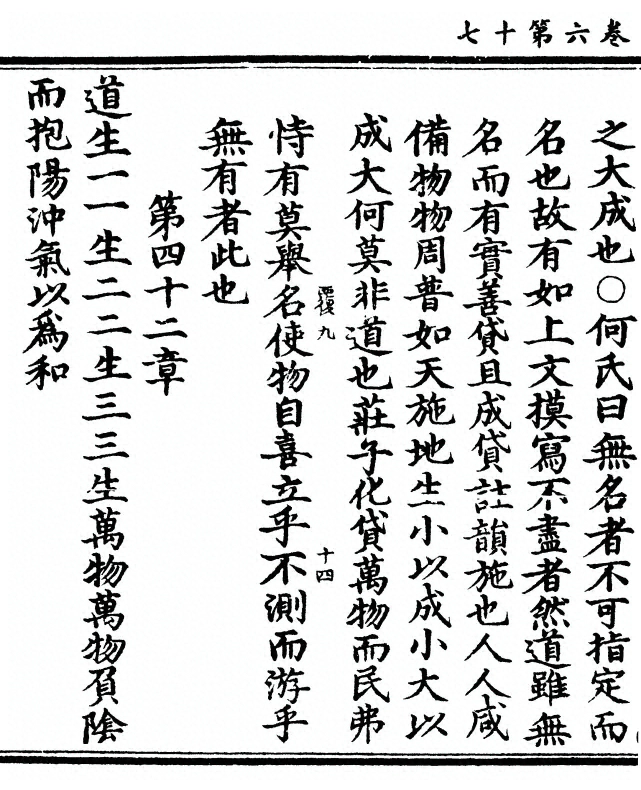 卷六第十七
之大成也○何氏曰無名者不可指定而
名也故有如上文摸寫不盡者然道雖無
名而有實善貸且成貸註韻施也人人咸
備物物周普如天施地生小以成小大以
成大何莫非道也莊子化貸萬物而民弗
恃有莫舉名使物自喜立乎不測而游乎
覆九
十四
無有者此也
第四十二章
道生一一生二二生三三生萬物萬物負陰
而抱陽沖氣以為和